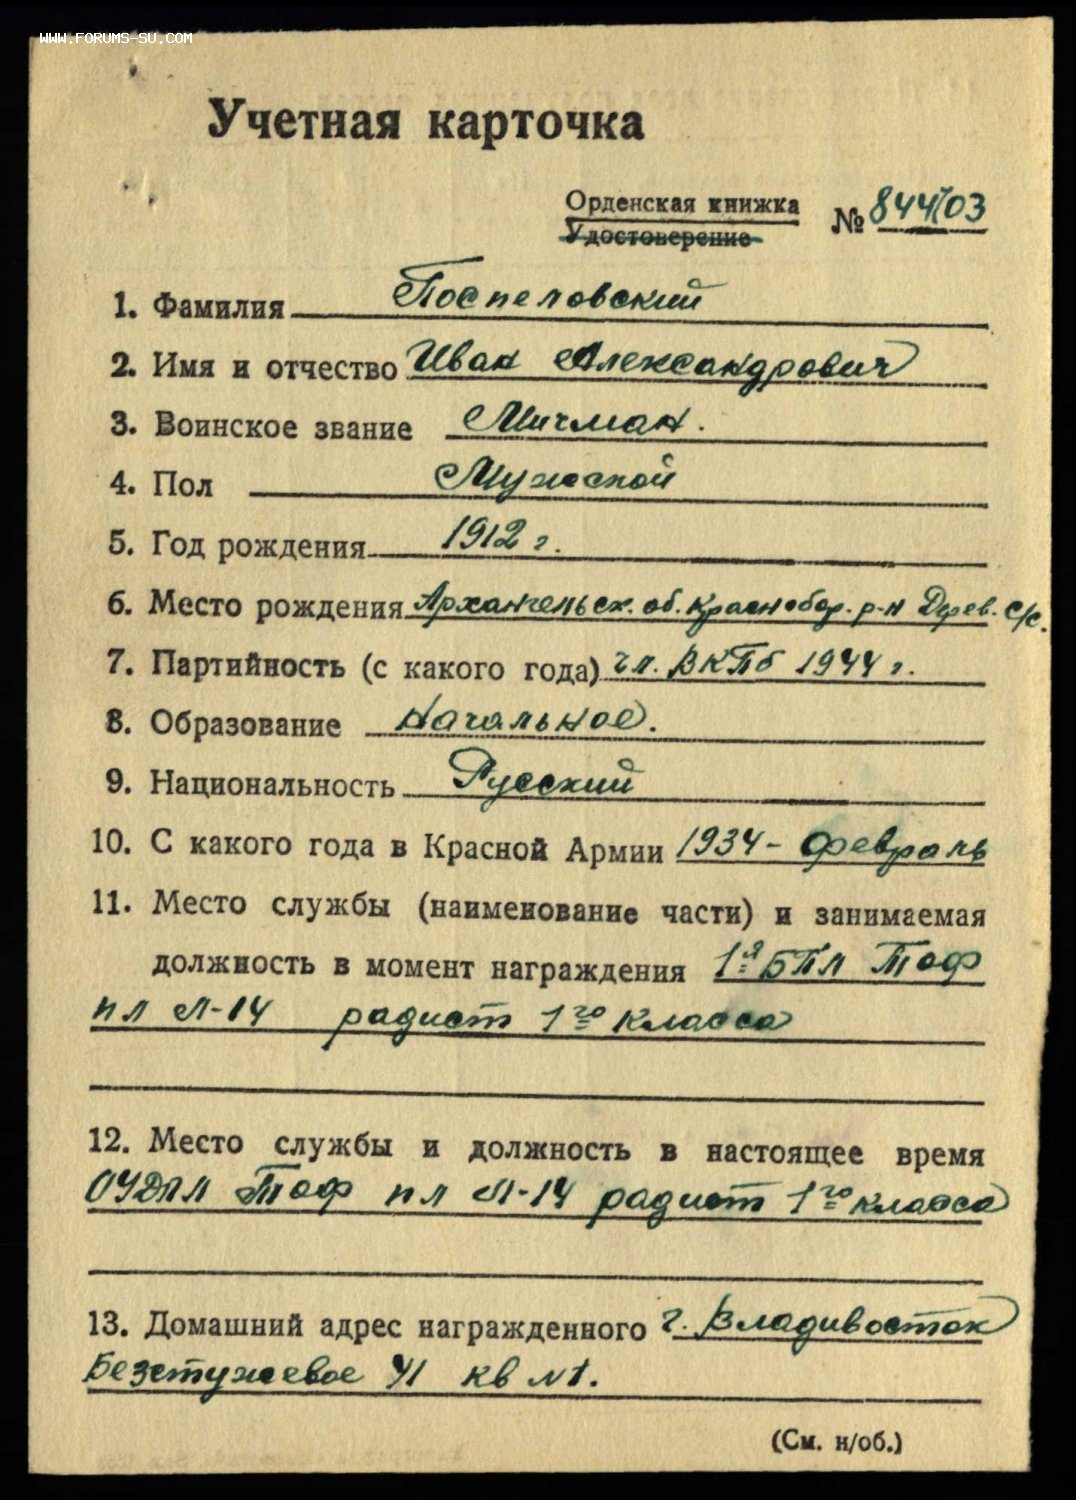 www.forums-su.com
Учетная карточка
Орденская книжка
Удостоверение
№
1. Фамилия Поспеловский
2. Имя и отчество Иван Александрович
3. Воинское звание Мичман.
4. Пол Мужской
5. Год рождения 1912 г.
6. Место рождения Архангельск. об. Краснобор. р-н Дерев. с/с.
7. Партийность (с какого года) чл. ВКПб 1944 г.
8. Образование Начальное.
9. Национальность Русский
10. С какого года в Красной Армии 1934 - февраль
11. Место службы (наименование части) и занимаемая
должность в момент награждения 1я БПЛ Тоф
пл Л-14 радист 1го класса
12. Место службы и должность в настоящее время
ОУДПЛ Тоф пл Л-14 радист 1го класса
13. Домашний адрес награжденного г. Владивосток
Безстужевое 41 кв №1.
(См. н/об.)